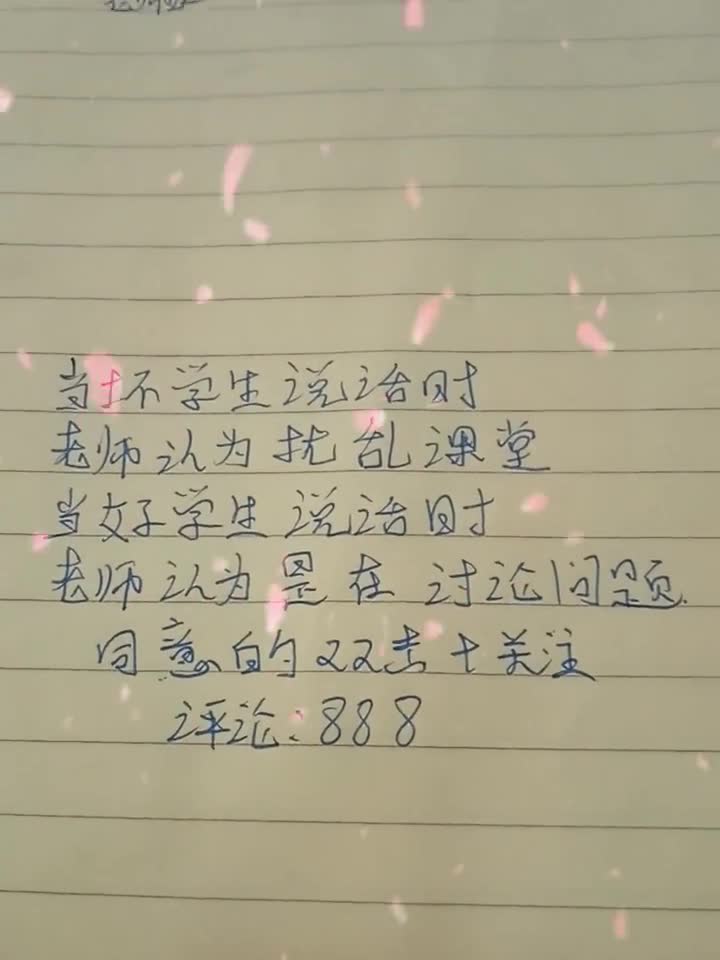 当坏学生说话时
老师认为扰乱课堂
当好学生说话时
老师认为是在讨论问题.
同意的双击+关注
评论:888